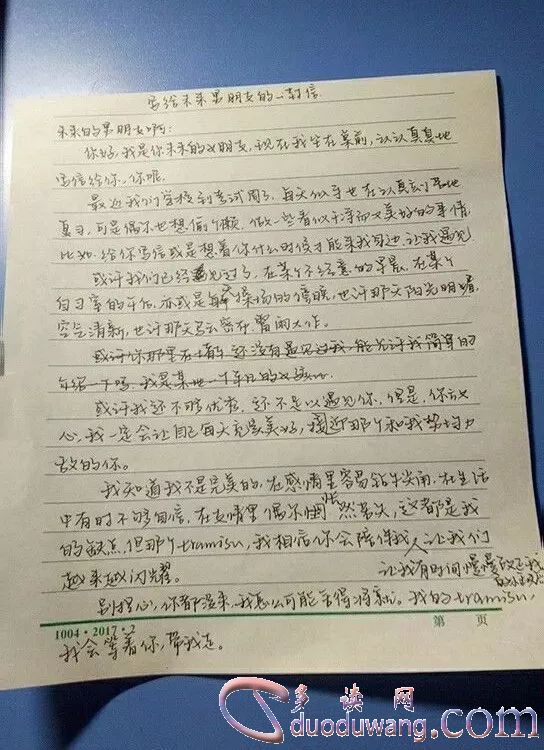 写给未来男朋友的一封信
未来的男朋友啊:
你好,我是你未来的女朋友,现在我坐在桌前,认认真真地
写信给你,你呢
最近我们学校到考试周了,每天似乎也在认真
复习,可是偶尔也想偷个懒,做一些看似干净而又美好的事情,
比如,给你写信或是想着你什么时候才能来我身边,让我遇见
或许我们已经遇见过了,在某个不经意的早晨,在某个
自习室的午后,亦或是操场的傍晚,也许那天阳光明媚,
空气清新,也许那天乌云密布,雷雨大作。
或许你那里 还没有遇见过我,能允许我简单的
介绍一下吗,我是某地一个
或许我还不够优秀,还不足以遇见你,但是,你放
心,我一定会让自己每天充实美好,接近那个和我势均力
敌的你。
我知道我不是完美的,在感情里容易钻牛角尖,在生活
中有时不够自信,在友情里偶尔 然若失,这都是我
的缺点,但那个tramisu,我相信你会陪伴我,让我们
越来越闪耀。
让我有时间慢慢改正我
的小缺点
别担心,你都没来,我怎么可能舍得将就。我的tramisu,
1004·2017·2
第 页
我会等着你,带我走。
多读网
duoduwang.com